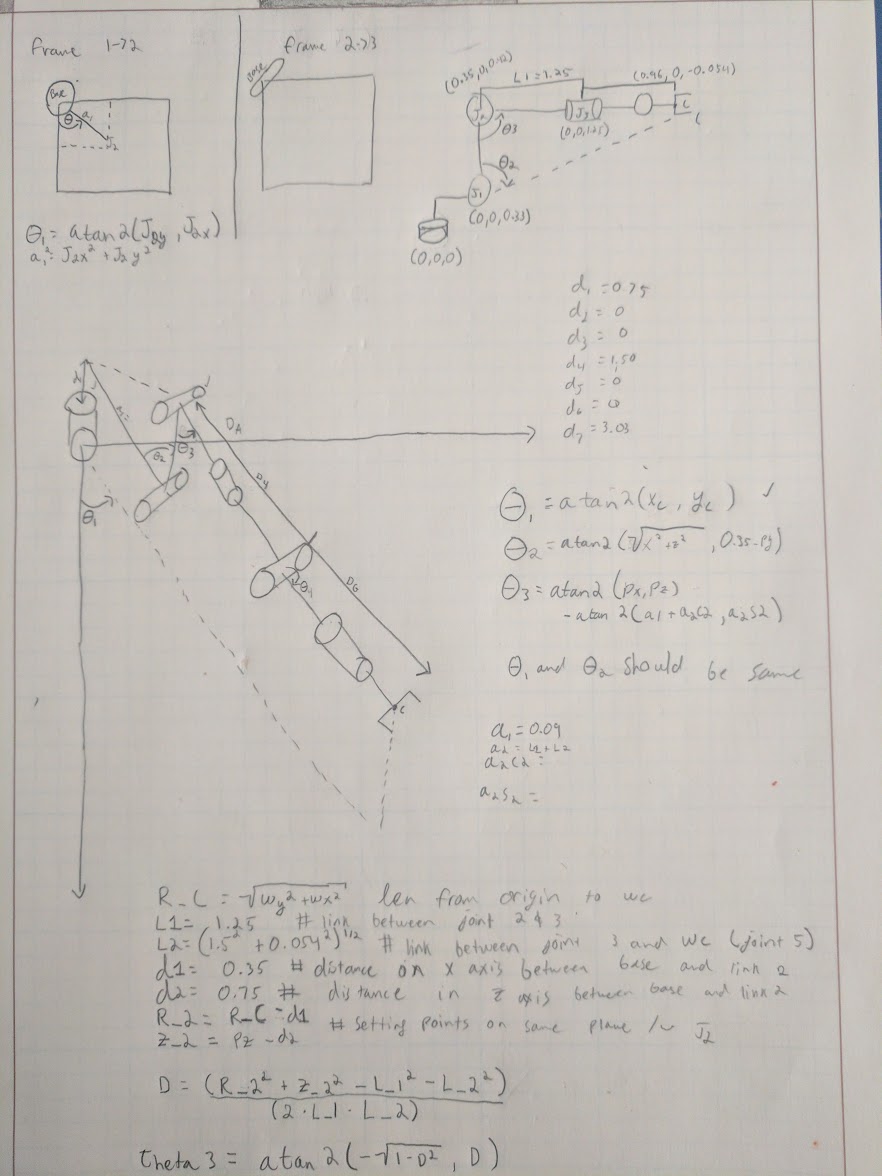 frame 1→2
frame 2→3
Base
θ a₁
J₂
θ₁ = atan2(J₂y, J₂x)
a₁² = J₂x² + J₂y²
Base
(0.35,0,0.42)
L1=1.25
(0.96, 0, -0.054)
J₂
J₃
C
θ3
(0,0,1.25)
θ2
J₁
(0,0,0.33)
(0,0,0)
d₁ = 0.75
d₂ = 0
d₃ = 0
d₄ = 1.50
d₅ = 0
d₆ = 0
d₇ = 3.03
DA
θ₂
θ₃
D4
θ₁
θ4
DG
C
θ₁ = atan2(xc, yc) ✓
θ₂ = atan2(√x²+z², 0.35-py)
θ₃ = atan2(px, pz)
- atan2(a1 + a₂c2, a₂s2)
θ₁ and θ₂ should be same
a₁ = 0.09
a₂ = L1+L2
a₂c2 =
a₂s₂ =
R_C = √wy²+wx² len from origin to wc
L1 = 1.25 # link between joint 2 & 3
L2 = (1.5² + 0.054²)^1/2 # link between joint 3 and wc (joint 5)
d1 = 0.35 # distance on x axis between base and link 2
d2 = 0.75 # distance in z axis between base and link 2
R_2 = R_C - d1 # setting points on same plane /w J₂
z_2 = pz - d2
D = (R_2² + z_2² - L_1² - L_2²)
(2·L_1·L_2)
theta 3 = atan2(-√1-D², D)